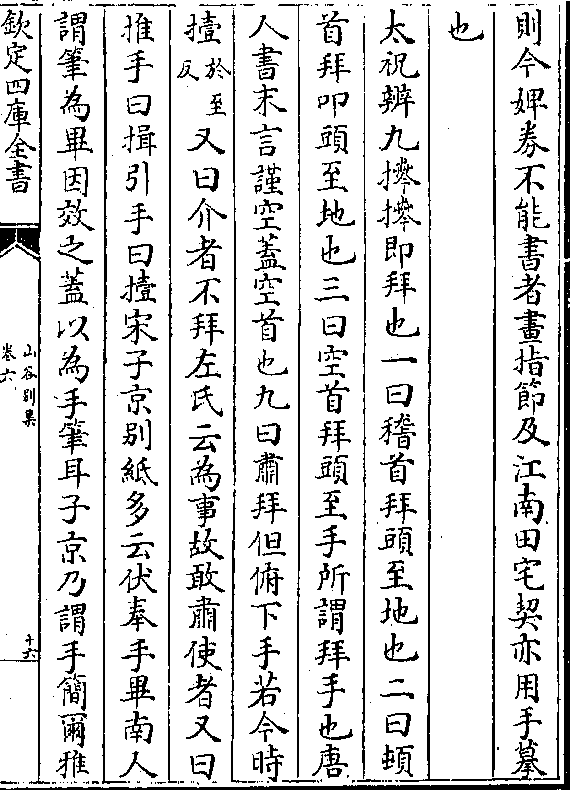 則今婢券不能書者畫指節及江南田宅契亦用手摹
也
太祝辨九𢷎𢷎即拜也一曰稽首拜頭至地也二曰頓
首拜叩頭至地也三曰空首拜頭至手所謂拜手也唐
人書末言謹空蓋空首也九曰肅拜但俯下手若今時
撎於至反又曰介者不拜左氏云為事故敢肅使者又曰
推手曰揖引手曰撎宋子京别紙多云伏奉手畢南人
謂筆為畢因效之蓋以為手筆耳子京乃謂手簡爾雅
欽定四庫全書
山谷别集
卷六
十六